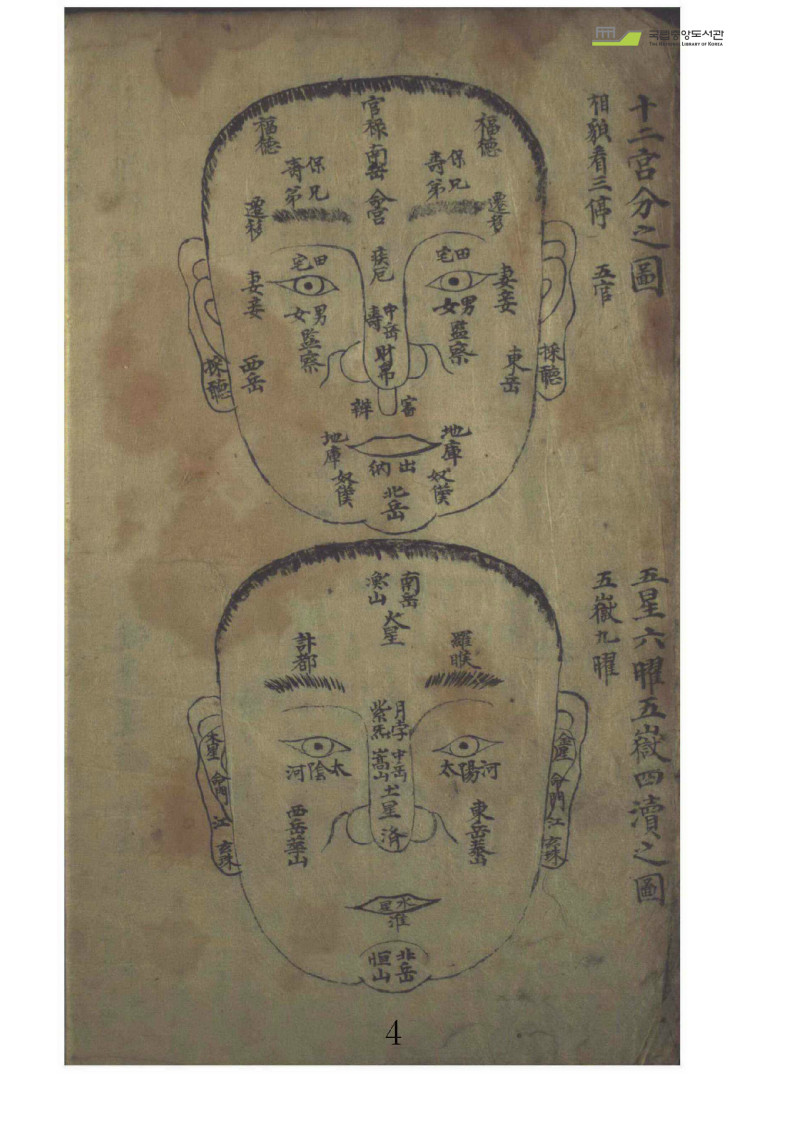 국립중앙도서관
THE NATIONAL LIBRARY OF KOREA
十二宮分之圖
相貌看三停 五官
官祿
南岳
命宮
福德
福德
保壽
兄弟
保壽
兄弟
遷移
遷移
疾厄
田宅
田宅
妻妾
妻妾
男女
男女
監察
監察
中岳
壽
財帛
採聽
採聽
東岳
西岳
地庫
地庫
出納
奴僕
奴僕
北岳
五星六曜五嶽四瀆之圖
五嶽九曜
南岳
火星
羅睺
計都
月孛
紫炁
中岳
嵩山
土星
済
太陽河
太陰河
金星
命門
江
玄珠
木星
命門
江
玄珠
東岳
西岳華山
水星
淮
北岳
恒山
4